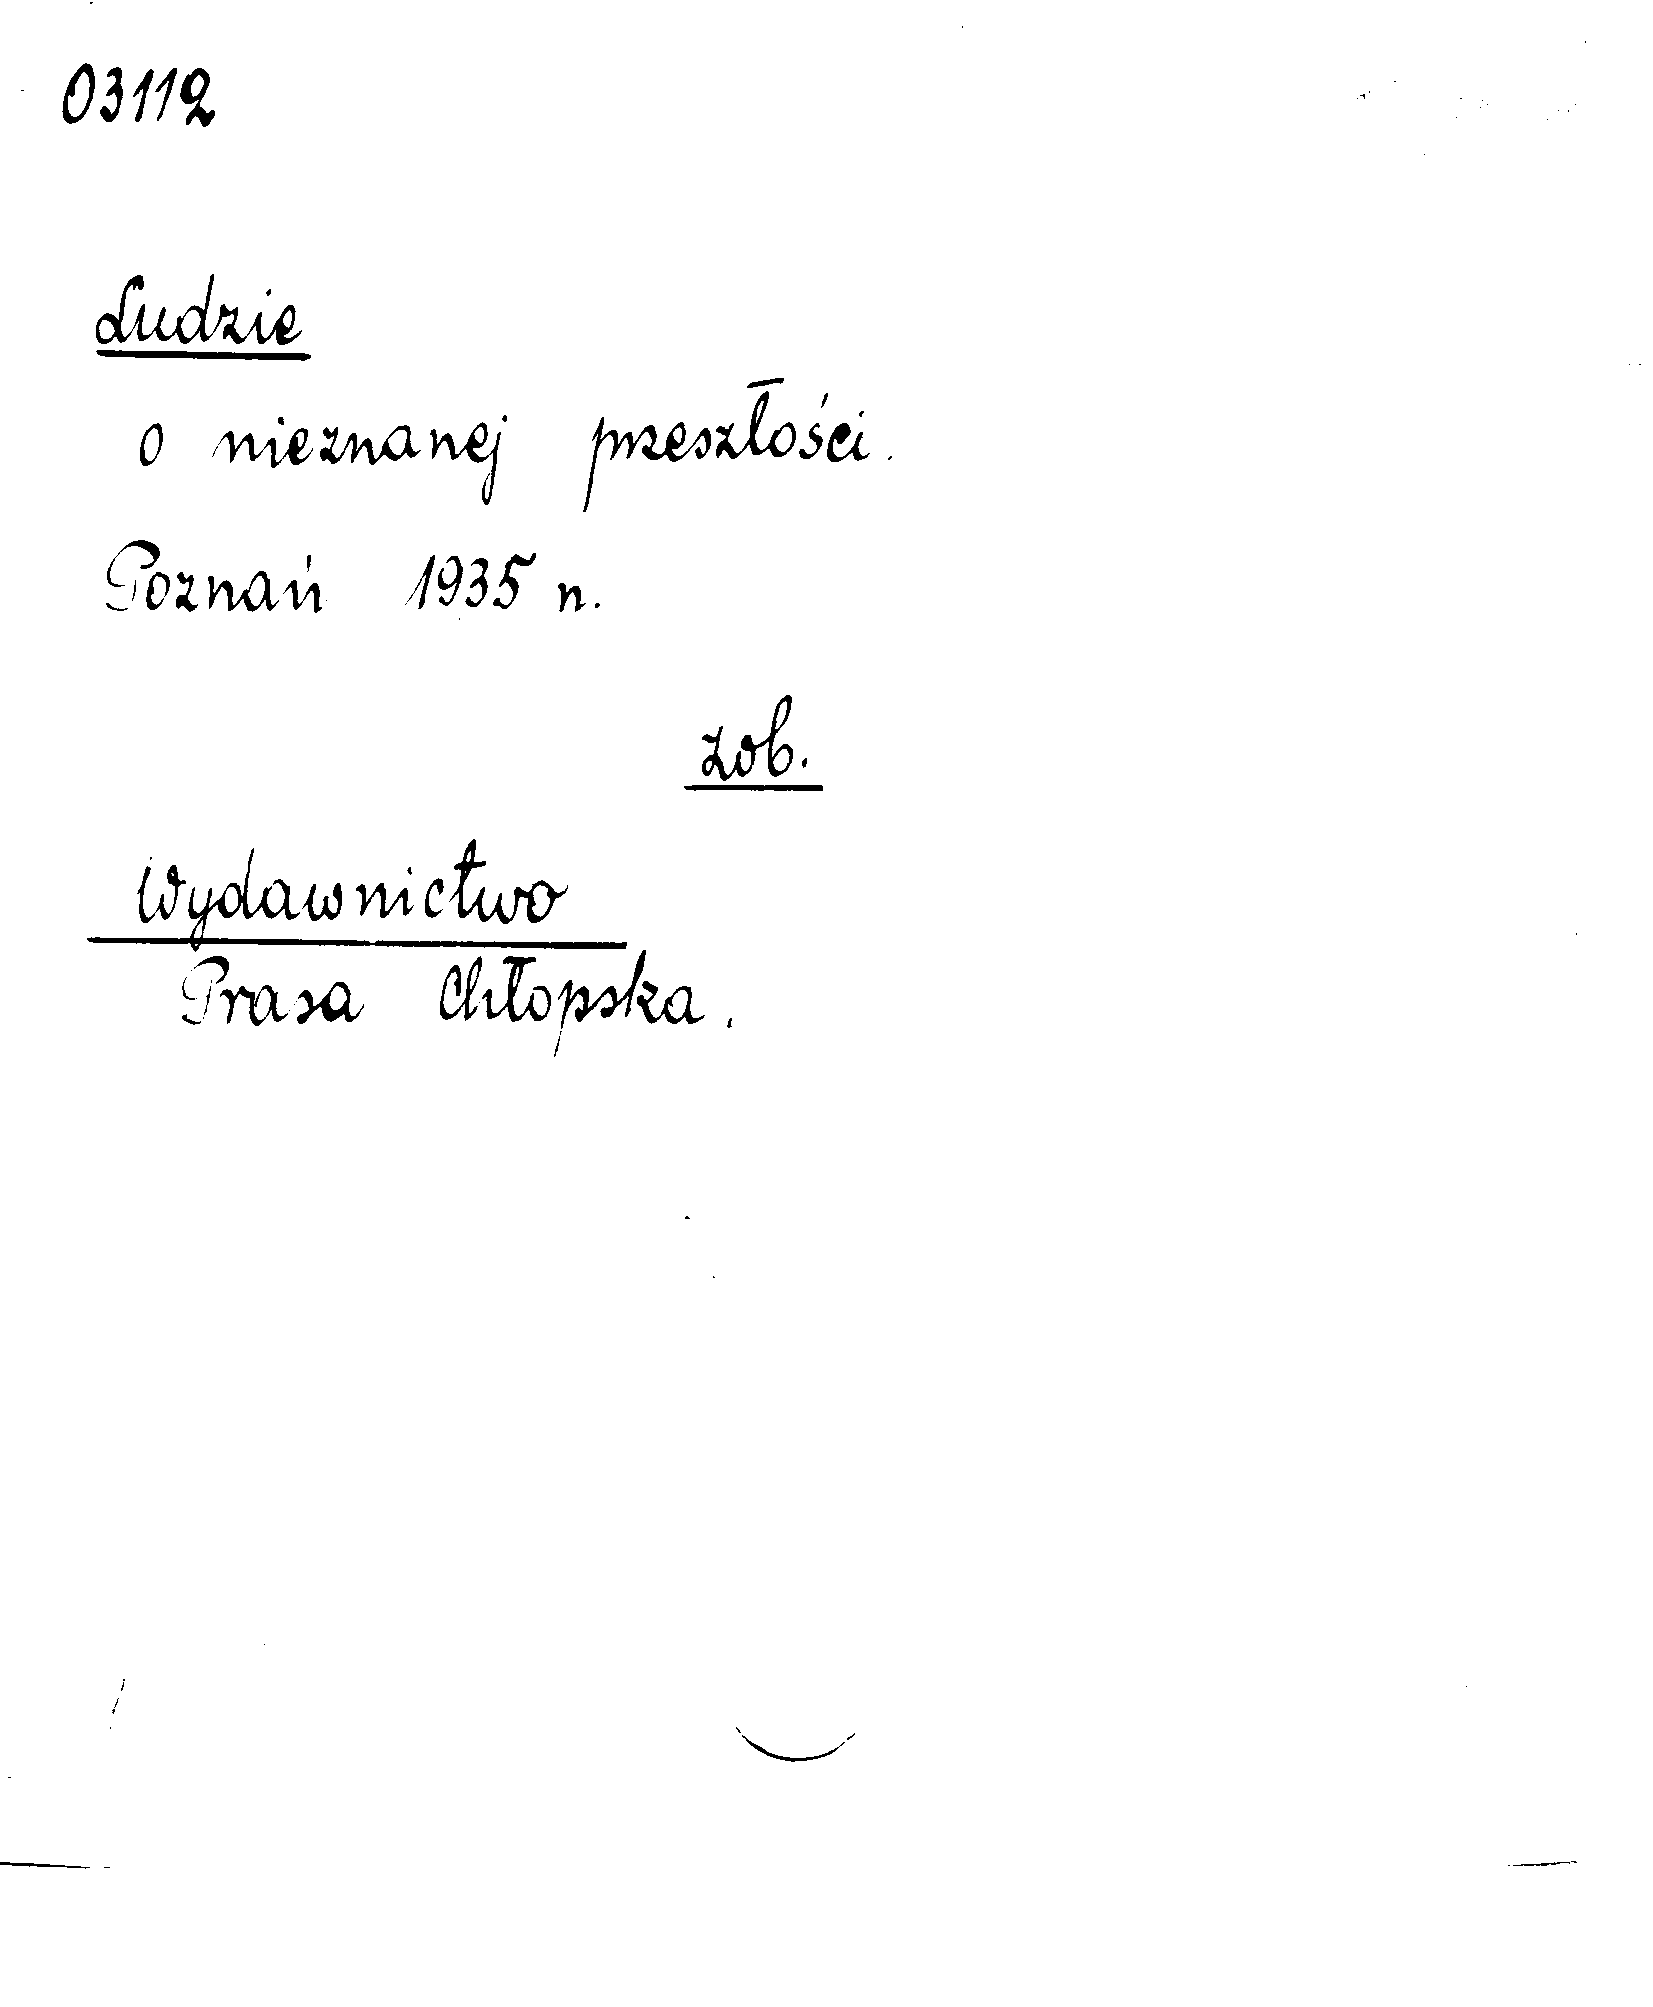 03112
Ludzie
o nieznanej przeszłości.
Poznań 1935 n.
zob.
Wydawnictwo
Prasa Chłopska.